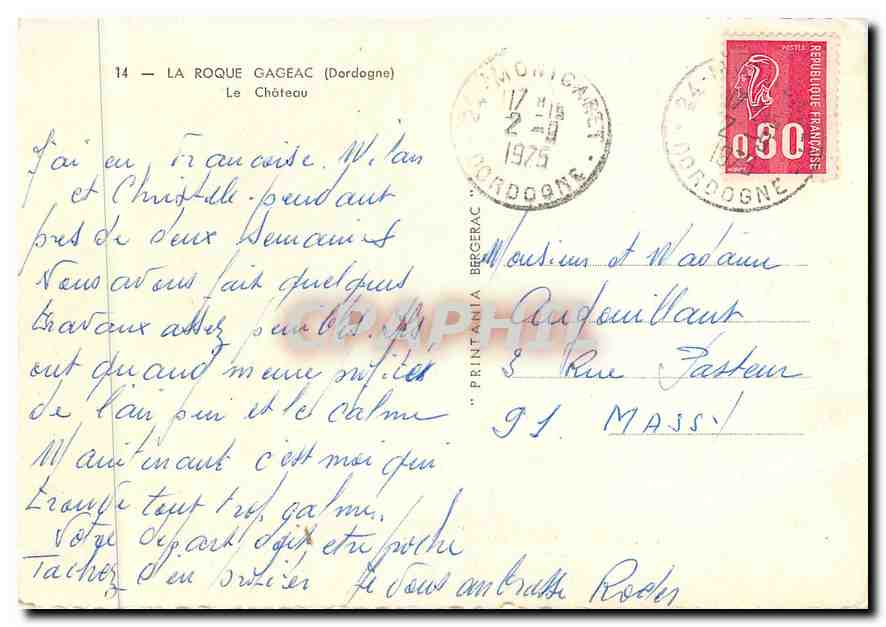 14 — LA ROQUE GAGEAC (Dordogne)
Le Château
J'ai eu Francoise. Milan
et Christelle pendant
pres de deux semaines
Nous avons fait quelques
travaux assez penibles. Ils
ont quand meme profités
de l'air pur et le calme
Maintenant c'est moi qui
trouve tout trop calme.
Votre depart doit etre proche
Tachez d'en profiter Je vous embrasse
" PRINTANIA BERGERAC "
24 - MONTCARET
17 H
2 - 9
1975
DORDOGNE
24 - M
DORDOGNE
POSTES
RÉPUBLIQUE FRANÇAISE
0,80
Monsieur et Madame
Audouillant
3 Rue Pasteur
91. MASSY
CPAPHIL